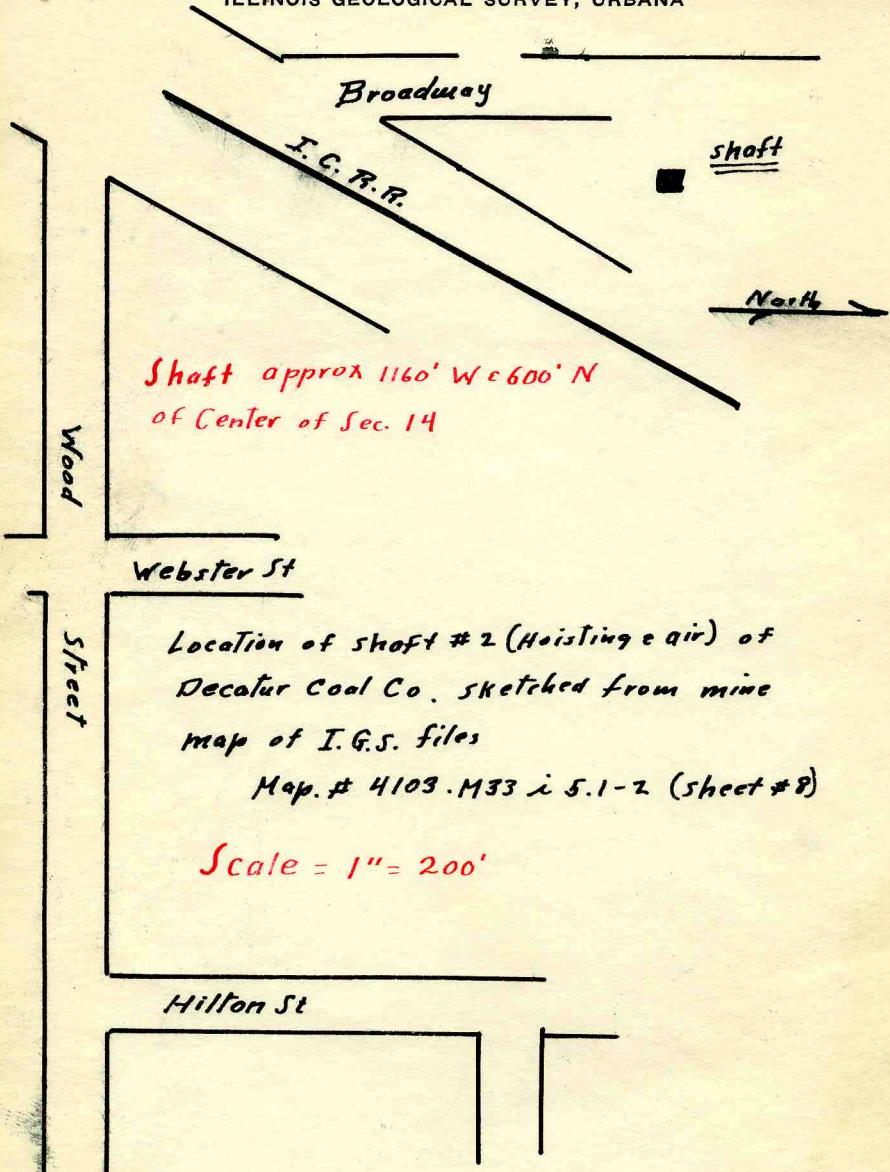 ILLINOIS GEOLOGICAL SURVEY, URBANA
Broadway
I.C.R.R.
shaft
North
Shaft approx 1160' W & 600' N
of Center of Sec. 14
Wood
Street
Webster St
Location of shaft #2 (Hoisting & air) of
Decatur Coal Co. sketched from mine
map of I.G.S. files
Map. # 4103.M33 i 5.1-2 (sheet #8)
Scale = 1" = 200'
Hilton St